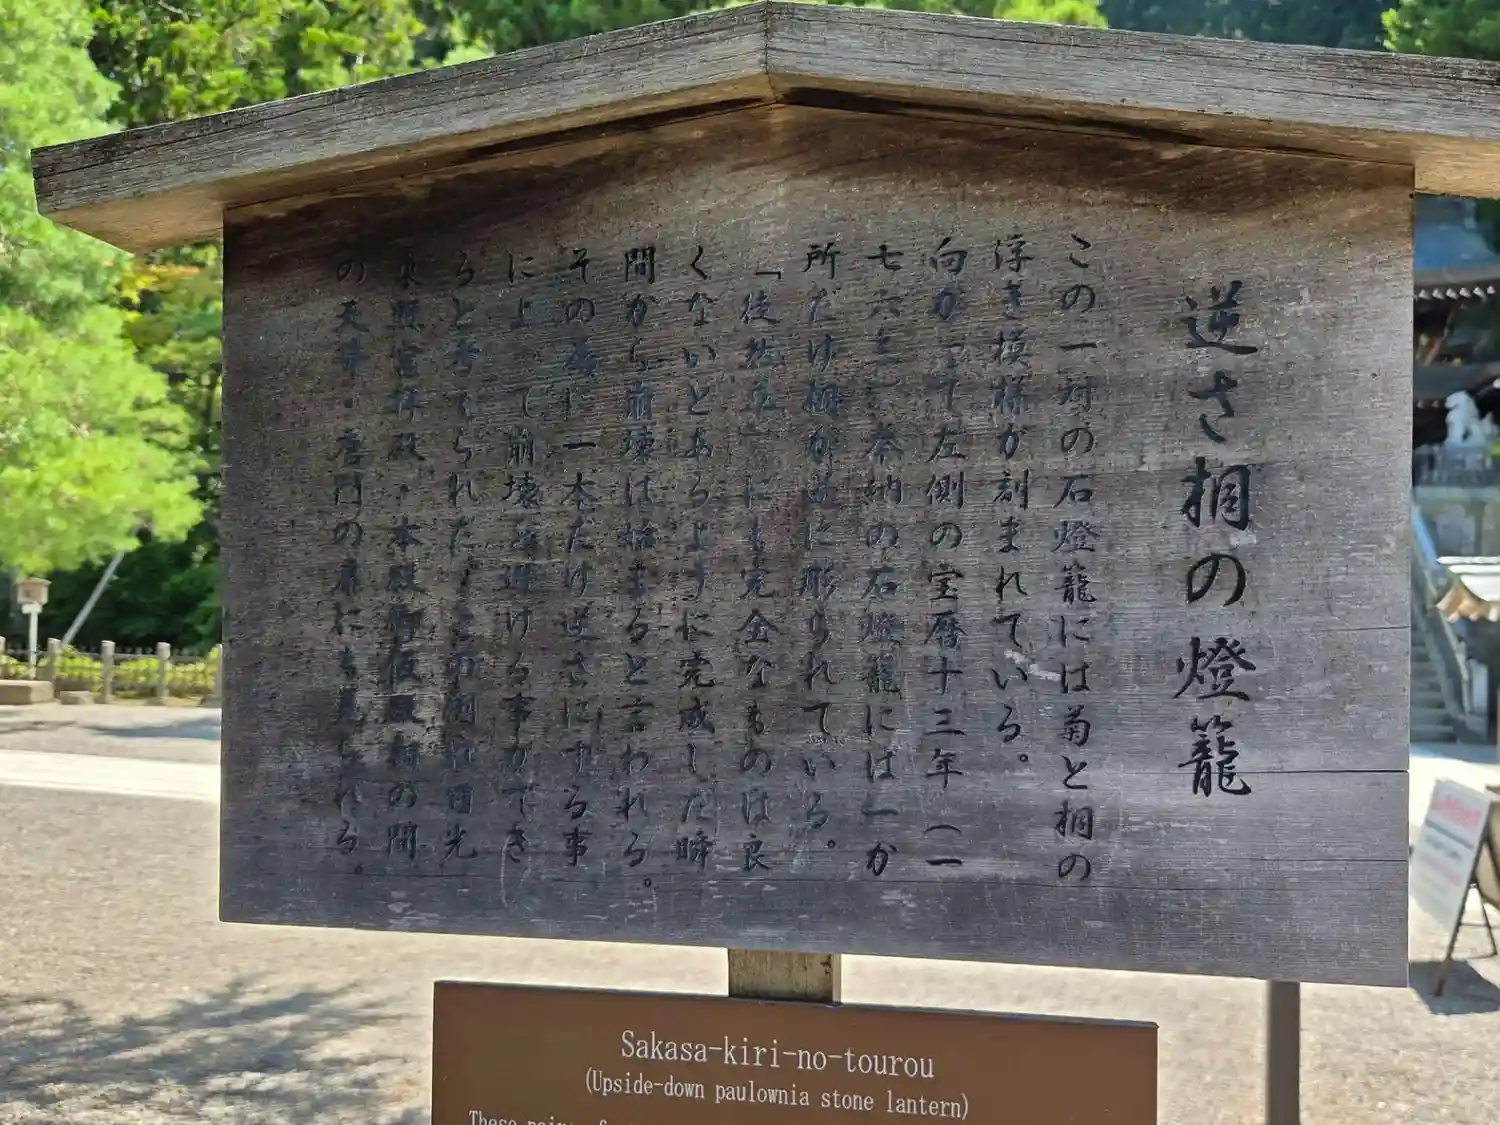 逆さ桐の燈籠
この一対の石燈籠には菊と桐の
浮き模様が刻まれている。
向かって左側の宝暦十三年(一
七六三)奉納の石燈籠には一か
所だけ桐が逆に彫られている。
「徒然草」にも完全なものは良
くないとあるように完成した瞬
間から崩壊は始まると言われる。
その為に一本だけ逆さにする事
によって崩壊を避ける事ができ
ると考えられた。この例は日光
東照宮拝殿・本殿御仮殿の間
の天井・唐門の扉にも見られる。
Sakasa-kiri-no-tourou
(Upside-down paulownia stone lantern)